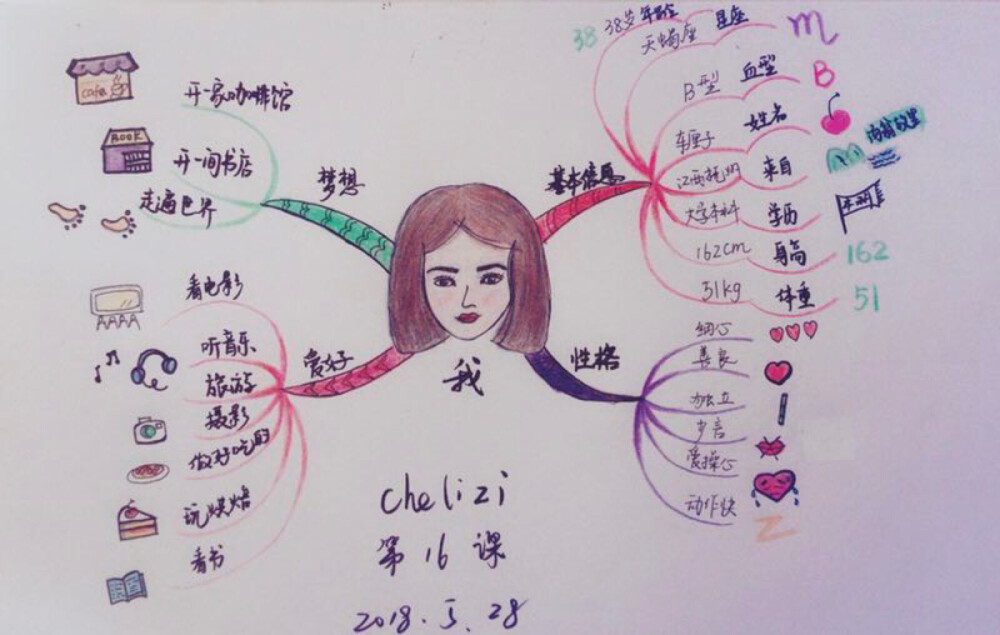 基本信息
38 38岁 年龄
天蝎座 星座 m
B型 血型 B
车厘子 姓名
江西抚州 来自
大学本科 学历 本科
162cm 身高 162
51kg 体重 51
性格
细心
善良
独立
少言
爱操心
动作快
Z
梦想
cafe
开一家咖啡馆
BOOK
开一间书店
走遍世界
爱好
看电影
听音乐
旅游
摄影
做好吃的
玩烘焙
看书
我
chelizi
第16课
2018.5.28